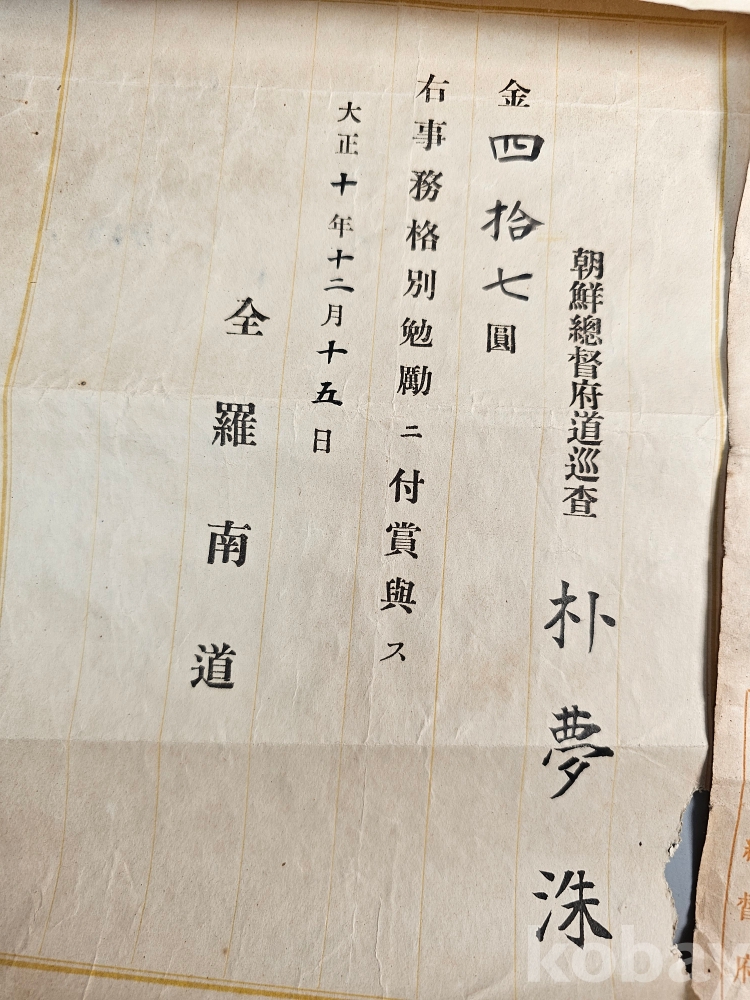 朝鮮總督府道巡査 朴夢洙
金四拾七圓
右事務格別勉勵ニ付賞與ス
大正十年十二月十五日
全羅南道
總督府
kobay